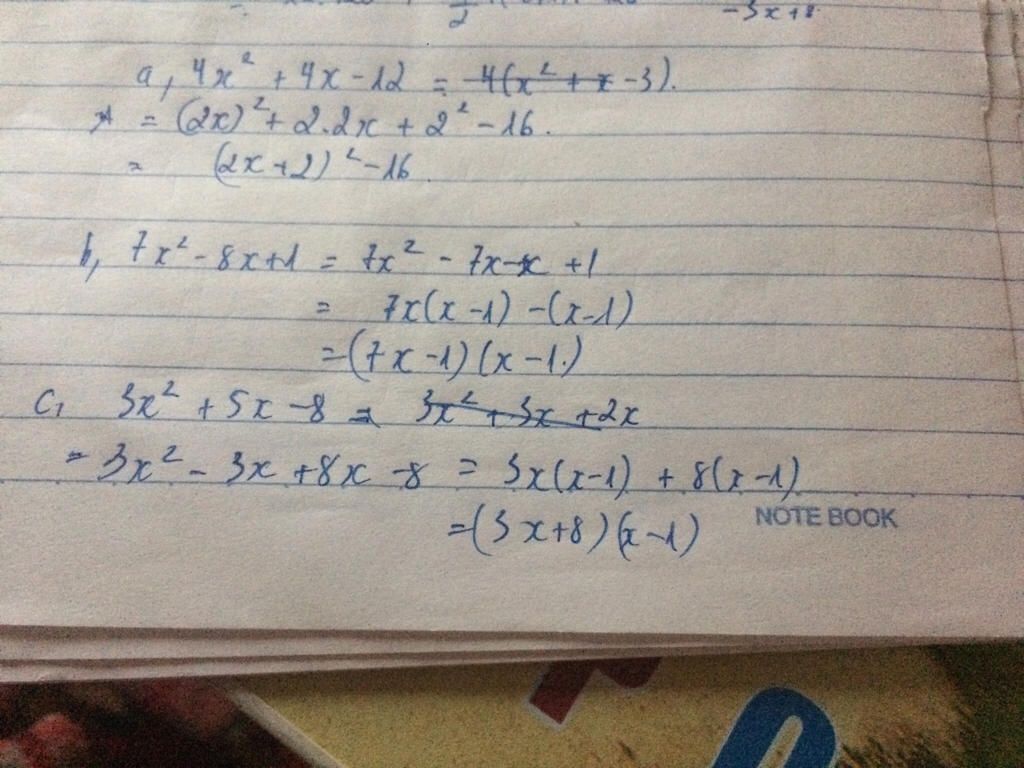 -3x+8
a, 4x² + 4x - 12 = 4(x² + x - 3).
= (2x)² + 2.2x + 2² - 16.
= (2x+2)² - 16.
b, 7x² - 8x + 1 = 7x² - 7x - x + 1
= 7x(x - 1) - (x - 1)
= (7x - 1)(x - 1.)
C, 3x² + 5x - 8 = 3x² + 3x + 2x
= 3x² - 3x + 8x - 8 = 3x(x-1) + 8(x-1)
= (3x+8)(x-1)
NOTE BOOK